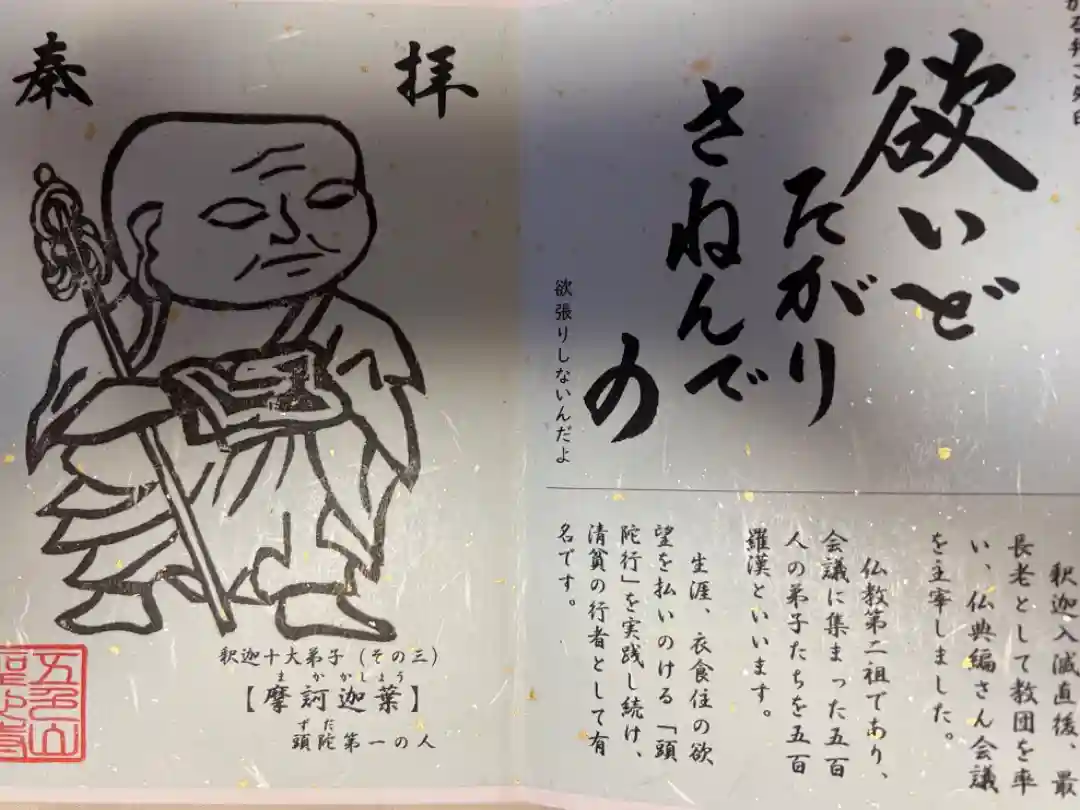 欲いど
たがり
さねんで
の
欲張りしないんだよ
釈迦入滅直後、最
長老として教団を率
い、仏典編さん会議
を主宰しました。
仏教第二祖であり、
会議に集まった五百
人の弟子たちを五百
羅漢といいます。
生涯、衣食住の欲
望を払いのける「頭
陀行」を実践し続け、
清貧の行者として有
名です。
奉拝
釈迦十大弟子（その三）
まかかしょう
【摩訶迦葉】
ずだ
頭陀第一の人